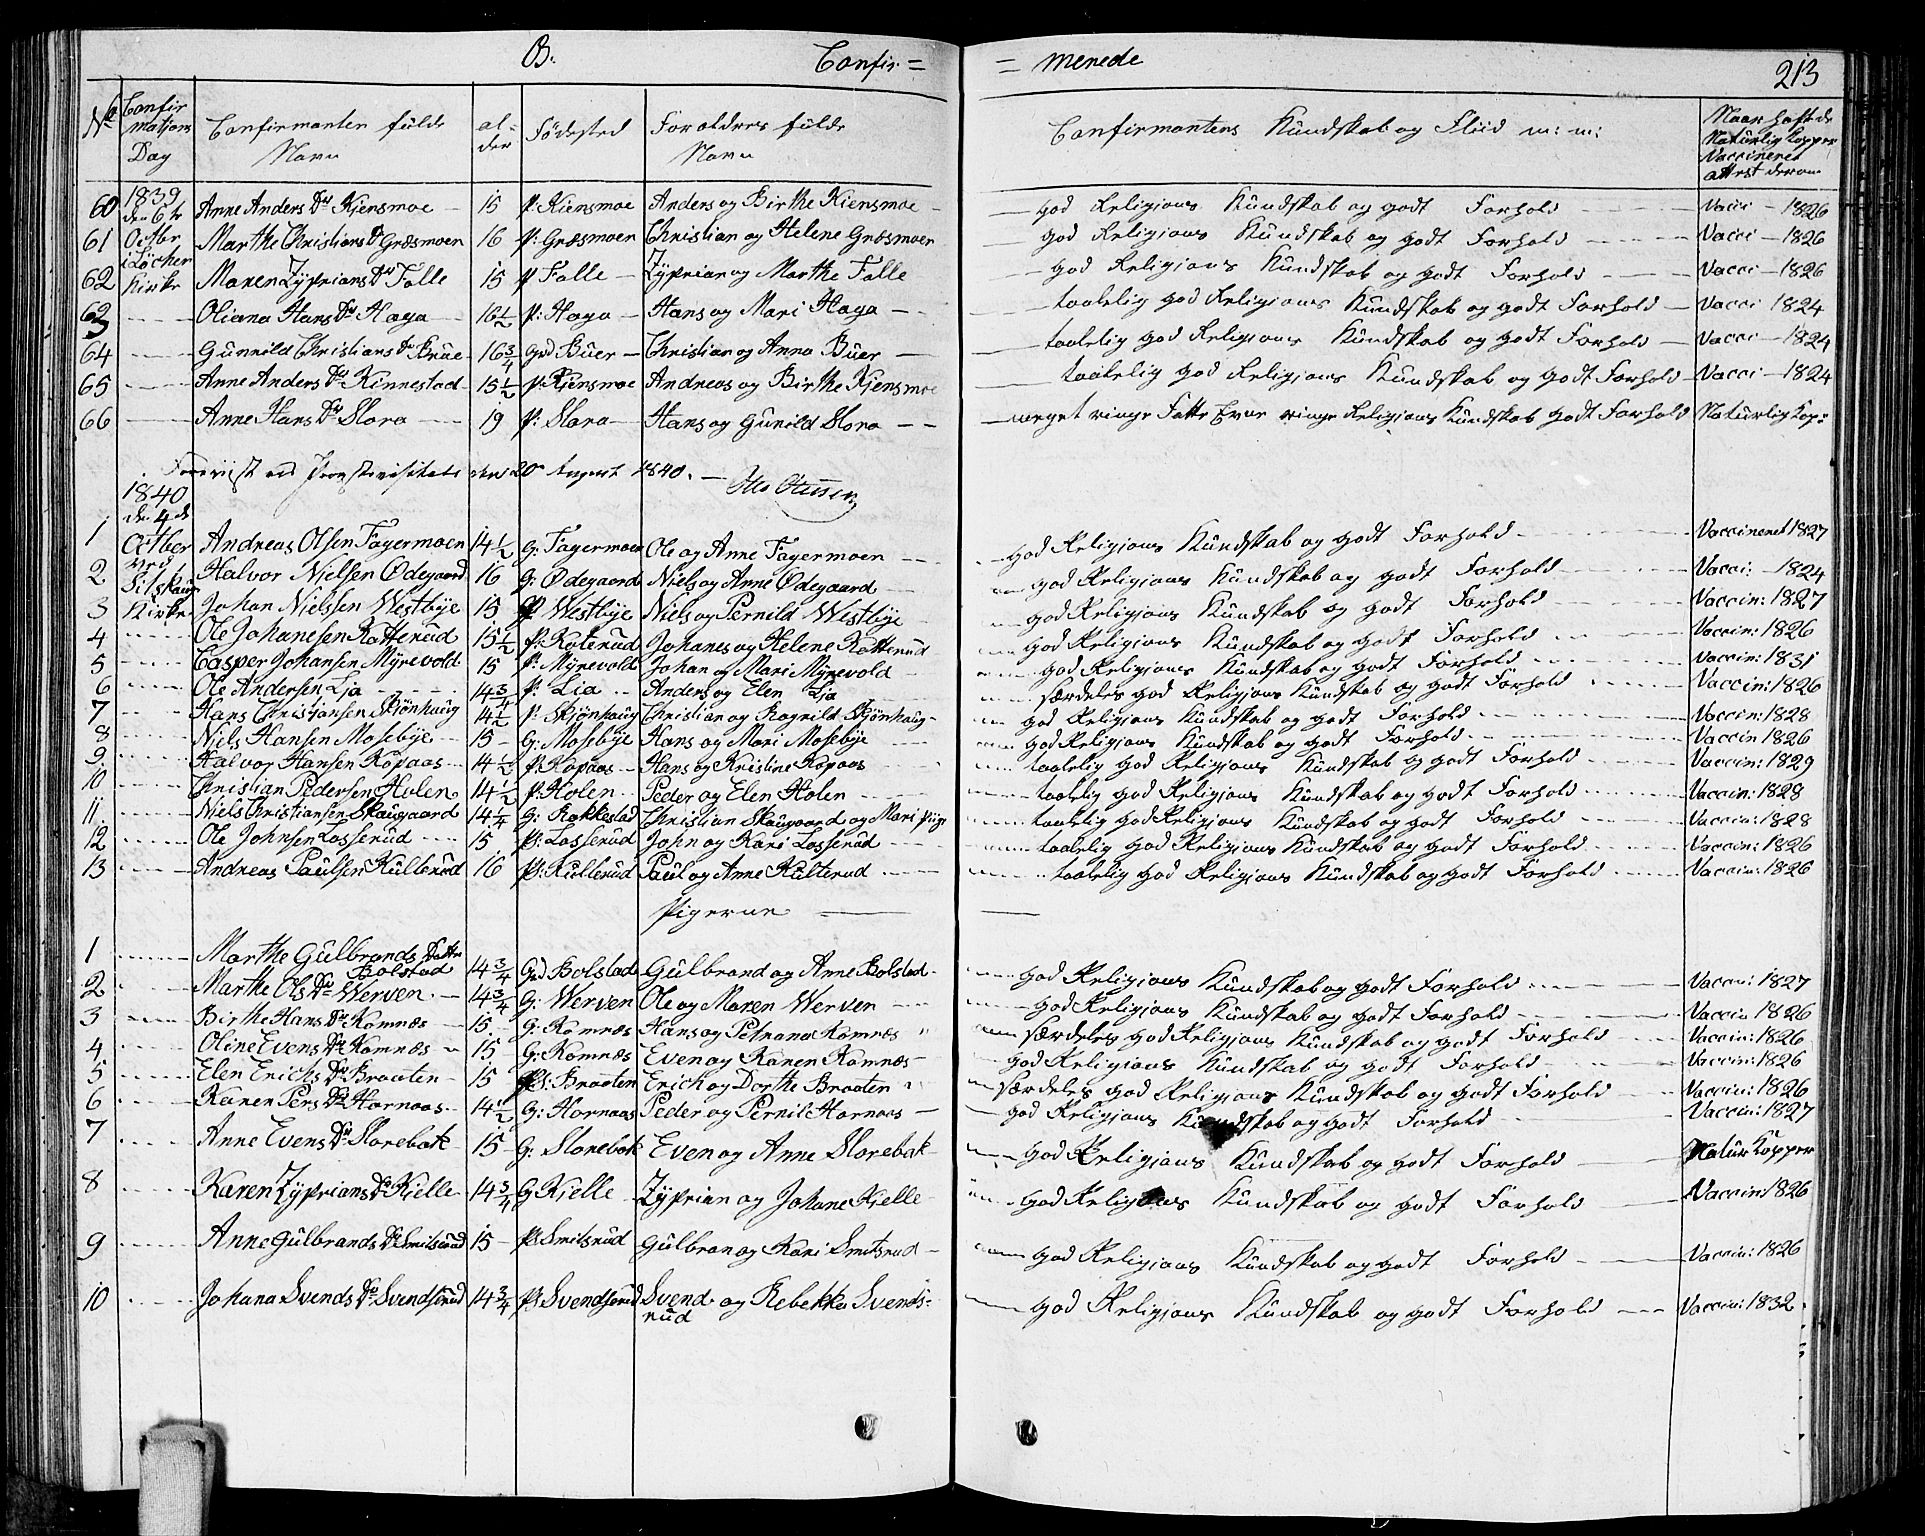 B. Confir= = merede 213
No Confirmations Dag Confirmanten fulde Navn alder Fødested Foraldres fulde Navn Confirmantens Kundskab og Fliid m: m: Naar hafte de Naturlig Kopper Vaccineret attest derom
60 1839 den 6te Anne Anders Dtr Kjensmoe 15 P: Kiensmoe Anders og Birthe Kiensmoe god Religions Kundskab og godt Forhold Vacci 1826
61 Octbr Marthe Christians Dr Græsmoen 16 P: Græsmoen Christian og Helene Græsmoen god Religions Kundskab og godt Forhold Vacci 1826
62 i Løcher Kirke Maren Zyprians Dtr Falle 15 P Falle Zyprian og Marthe Falle god Religions Kundskab og godt Forhold Vacci 1826
63 Oliana Hans Dtr Haga 16 1/2 P: Haga Hans og Mari Haga taalelig god Religions Kundskab og godt Forhold Vacci 1824
64 Gunnild Christians Dr Brue 16 3/4 Grd Buer Christian og Anna Buer taalelig god Religions Kundskab og godt Forhold Vacci 1824
65 Anne Anders Dtr Kinnestad 15 1/2 P: Kjensmoe Andreas og Birthe Kjensmoe taalelig god Religions Kundskab og godt Forhold Vacci 1824
66 Anne Hans Dtr Slora 19 P: Slora Hans og Gunild Slora meget ringe Fatte Evne ringe Religions Kundskab godt Forhold Naturlig Kop:
Foreviist ved Provstevisitats den 20 August 1840.
1 1840 den 4de Octber Andreas Olsen Fagermoen 14 1/2 G: Fagermoen Ole og Anne Fagermoen god Religions Kundskab og godt Forhold Vaccineret 1827
2 ved Halvor Nielsen Ødegaard 16 G: Ødegaard Niels og Anne Ødegaard god Religions Kundskab og godt Forhold Vacci: 1824
3 Kirke Johan Nielssen Westbye 15 P Westbye Niels og Pernild Westbye god Religions Kundskab og godt Forhold Vaccin: 1827
4 Ole Johanesen Kotterud 15 1/2 P: Koterud Johanes og Helene Kotterud god Religions Kundskab og godt Forhold Vaccin: 1826
5 Casper Johansen Myrevold 15 P: Myrevold Johan og Mari Myrevold god Religions Kundskab og godt Forhold Vaccin: 1831
6 Ole Andersen Lja 14 3/4 P: Lia Anders og Elen Lja særdeles god Religions Kundskab og godt Forhold Vaccin: 1826
7 Hans Christjansen Skjønhaug 14 1/2 P: Skjønhaug Christian og Ragnild Skjønhaug god Religions Kundskab og godt Forhold Vaccin: 1828
8 Niels Hansen Mosebye 15 G: Mosebye Hans og Mari Mosebye god Religions Kundskab og godt Forhold Vaccin 1826
9 Halvor Hansen Kopaas 14 1/2 P: Kopaas Hans og Kristine Kopaas taalelig god Religions Kundskab og godt Forhold Vaccin: 1829
10 Christian Pedersen Holen 14 1/2 P: Holen Peder og Elen Holen taalelig god Religions Kundskab og godt Forhold Vaccin: 1828
11 Niels Christiansen Skaugaard 14 1/4 G: Rakkestad Christian Skaugaard og Mari pige taalelig god Religions Kundskab og godt Forhold Vaccin: 1828
12 Ole Johnsen Losserud 15 Pl: Losserud John og Kari Losserud taalelig god Religions Kundskab og godt Forhold Vaccin: 1826
13 Andreas Paulsen Kullerud 16 Pl: Kullerud Paul og Anne Kulterud taalelig god Religions Kundskab og godt Forhold Vaccin: 1826
Pigerne
1 Marthe Gulbrands Datter Bolstad 14 3/4 Grd Bolstad Gulbrand og Anne Bolstad god Religions Kundskab og godt Forhold Vaccin: 1827
2 Marthe Ols Dtr Werven 14 3/4 G: Werven Ole og Maren Werven god Religions Kundskab og godt Forhold Vaccin 1826
3 Birthe Hans Dtr Komnæs 15 G: Komnæs Hans og Petnana Komnæs særdeles god Religions Kundskab og godt Forhold Vaccin: 1826
4 Oline Evens Dtr Komnæs 15 G: Komnæs Even og Karen Komnæs god Religions Kundskab og godt Forhold Vaccin: 1826
5 Elen Erichs Dtr Braaten 15 Pl: Braaten Erich og Dorthe Braaten særdeles god Religions Kundskab og godt Forhold Vaccin: 1826
6 Karen Pers Dtr Hornaas 14 1/2 G: Hornaas Peder og Pernil Hornaas god Religions Kundskab og godt Forhold Vaccin: 1827
7 Anne Evens Dtr Slorebak 15 G: Slorebak Even og Anne Slorebak god Religions Kundskab og godt Forhold Natur Kopper
8 Karen Zyprians Dr Kjelle 14 3/4 G Kjelle Zyprian og Johane Kjelle god Religions Kundskab og godt Forhold Vaccin: 1826
9 Anne Gulbrands Dr Smitsrud 15 Pl Smitsrud Gulbran og Kari Smitsrud god Religions Kundskab og godt Forhold Vaccin: 1826
10 Johana Svends Dr Svendserud 14 3/4 Pl Svendserud Svend og Rebekka Svendsrud god Religions Kundskab og godt Forhold Vaccin: 1832